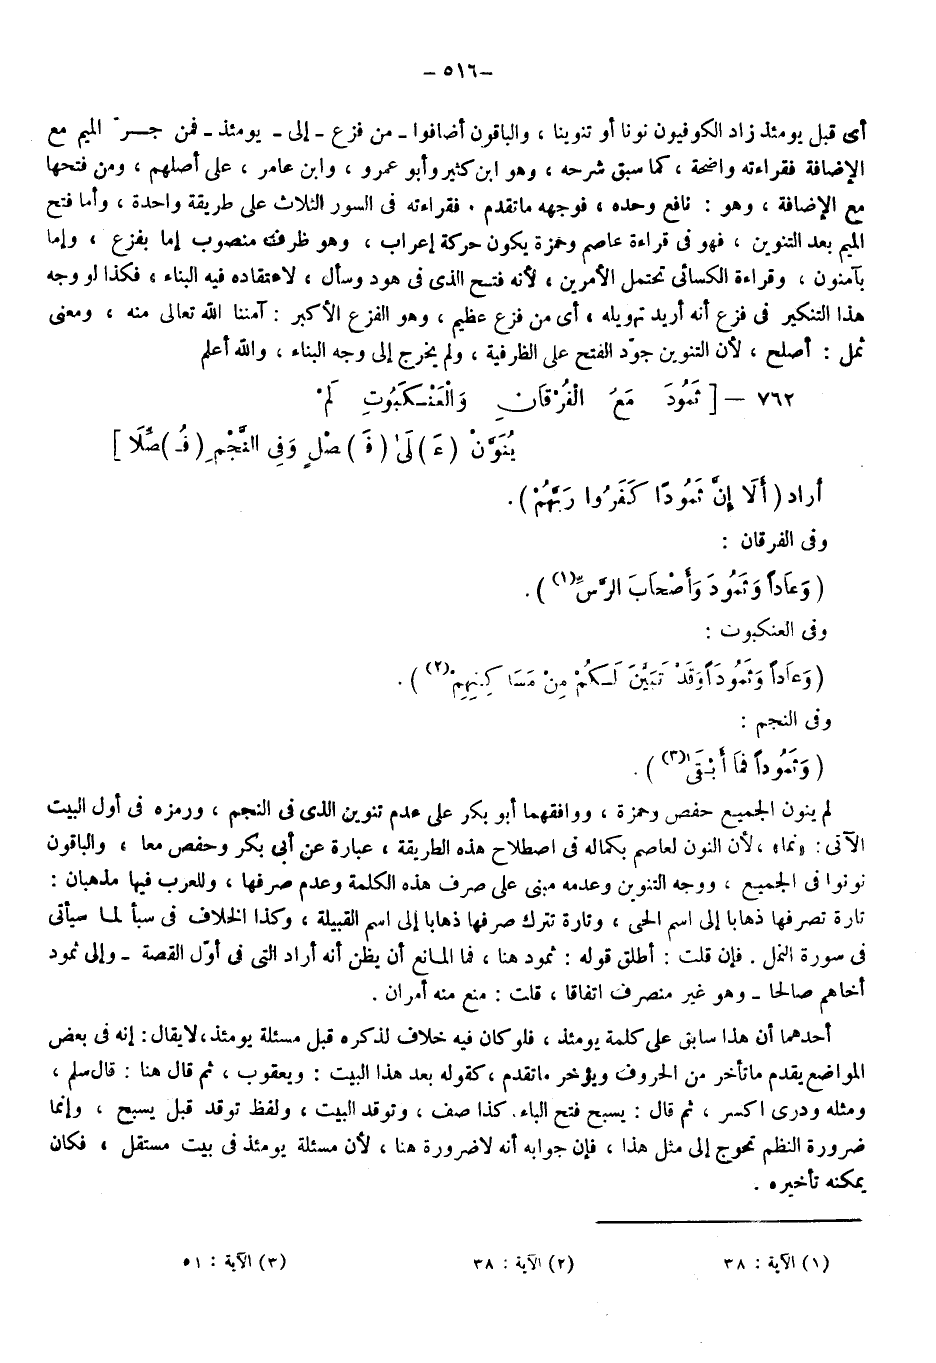 –٥١٦–
أى قبل يومئذ زاد الكوفيون نونا أو تنوينا ، والباقون أضافوا ـ من فزع ـ إلى ـ يومئذ ـ فمن جـــر الميم مع
الإضافة فقراءته واضحة ، كما سبق شرحه ، وهو ابن كثير وأبو عمرو ، وابن عامر ، على أصلهم ، ومن فتحها
مع الإضافة ، وهو : نافع وحده ، فوجهه ماتقدم . فقراءته فى السور الثلاث على طريقة واحدة ، وأما فتح
الميم بعد التنوين ، فهو فى قراءة عاصم وحمزة يكون حركة إعراب ، وهو ظرف منصوب إما بفزع ، وإما
بآمنون ، وقراءة الكسائى تحتمل الأمرين ، لأنه فتـح الذى فى هود وسأل ، لاعتقاده فيه البناء ، فكذا لو وجه
هذا التنكير فى فزع أنه أريد تهويله ، أى من فزع عظيم ، وهو الفزع الأكبر : آمننا الله تعالى منه ، ومعنى
ثمل : أصلح ، لأن التنوين جوّد الفتح على الظرفية ، ولم يخرج إلى وجه البناء ، والله أعلم
٧٦٢ – [ ثَمُودَ مَعَ الْفُرْقَانِ وَالْعَنْـكَبُوتِ لَمْ
يُنَوَّنْ (عَ)لَىٰ (فَ)صْلٍ وَفِى النَّجْمِ (فُـ)صِّلَا ]
أراد (أَلَا إِنَّ ثَمُودًا كَفَرُوا رَبَّهُمْ).
وفى الفرقان :
(وَعَاداً وَثَمُودَ وَأَصْحَابَ الرَّسِّ(١)).
وفى العنكبوت :
(وَعَاداً وَثَمُوداً وَقَدْ تَبَيَّنَ لَـكُمْ مِنْ مَسَاكِنِهِمْ(٢)).
وفى النجم :
(وَثَمُوداً فَمَا أَبْقَىٰ(٣)).
لم ينون الجميـع حفص وحمزة ، ووافقهما أبو بكر على عدم تنوين الذى فى النجم ، ورمزه فى أول البيت
الآتى : «نما» ، لأن النون لعاصم بكماله فى اصطلاح هذه الطريقة ، عبارة عن أبى بكر وحفص معا ، والباقون
نونوا فى الجميع ، ووجه التنوين وعدمه مبنى على صرف هذه الكلمة وعدم صرفها ، وللعرب فيها مذهبان :
تارة تصرفها ذهابا إلى اسم الحى ، وتارة تترك صرفها ذهابا إلى اسم القبيلة ، وكذا الخلاف فى سبأ لما سيأتى
فى سورة النمل . فإن قلت : أطلق قوله : ثمود هنا ، فما المانع أن يظن أنه أراد التى فى أوّل القصة ـ وإلى ثمود
أخاهم صالحا ـ وهو غير منصرف اتفاقا ، قلت : منع منه أمران .
أحدهما أن هذا سابق على كلمة يومئذ ، فلو كان فيه خلاف لذكره قبل مسئلة يومئذ، لايقال : إنه فى بعض
المواضع يقدم ماتأخر من الحروف ويؤخر ماتقدم ، كقوله بعد هذا البيت : ويعقوب ، ثم قال هنا : قال سلم ،
ومثله ودرى اكسر ، ثم قال : يسبح فتح الباء. كذا صف ، وتوقد البيت ، ولفظ توقد قبل يسبح ، وإنما
ضرورة النظم تحوج إلى مثل هذا ، فإن جوابه أنه لاضرورة هنا ، لأن مسئلة يومئذ فى بيت مستقل ، فكان
يمكنه تأخيره .
(١) الآية : ٣٨ (٢) الآية : ٣٨ (٣) الآية : ٥١